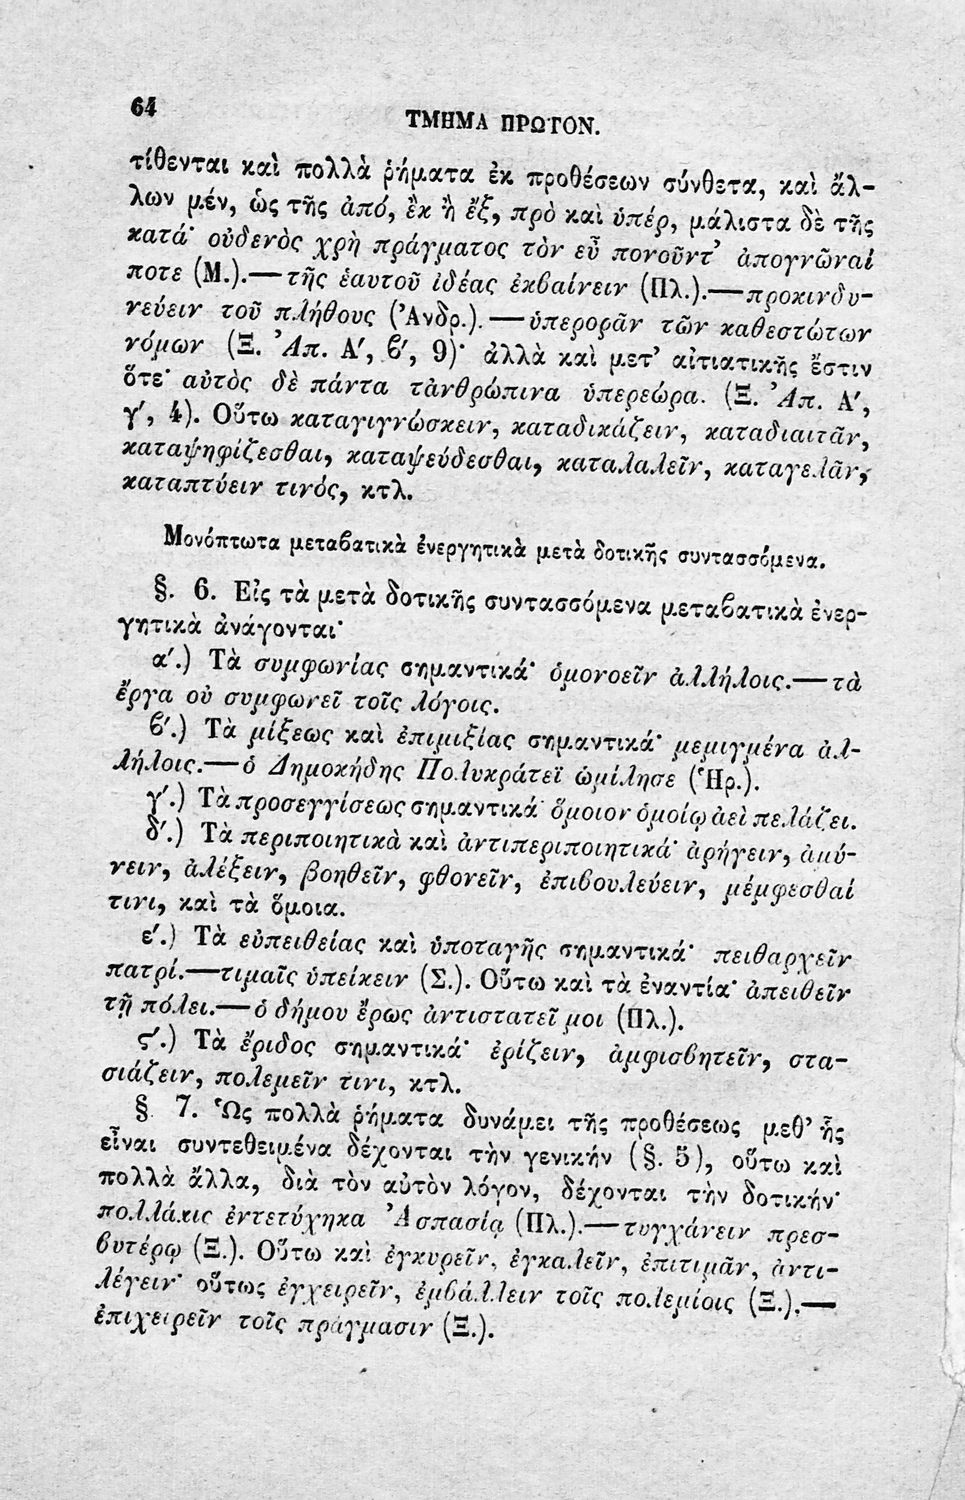 64
ΤΜΗΜΑ ΠΡΩΤΟΝ.
τίθενται καὶ πολλὰ ῥήματα ἐκ προθέσεων σύνθετα, καὶ ἄλ-
λων μέν, ὡς τῆς ἀπό, ἐκ ἢ ἐξ, πρὸ καὶ ὑπέρ, μάλιστα δὲ τῆς
κατά· οὐδενὸς χρὴ πράγματος τὸν εὖ πονοῦντ' ἀπογνῶναί
ποτε (Μ.).—τῆς ἑαυτοῦ ἰδέας ἐκβαίνειν (Πλ.).—προκινδυ-
νεύειν τοῦ πλήθους (Ἀνδρ.).—ὑπερορᾶν τῶν καθεστώτων
νόμων (Ξ. Ἀπ. Α′, ϐ′, 9)· ἀλλὰ καὶ μετ' αἰτιατικῆς ἔστιν
ὅτε· αὐτὸς δὲ πάντα τἀνθρώπινα ὑπερεώρα. (Ξ. Ἀπ. Α′,
γ′, 4). Οὕτω καταγιγνώσκειν, καταδικάζειν, καταδιαιτᾶν,
καταψηφίζεσθαι, καταψεύδεσθαι, καταλαλεῖν, καταγελᾶν,
καταπτύειν τινός, κτλ.
Μονόπτωτα μεταϐατικὰ ἐνεργητικὰ μετὰ δοτικῆς συντασσόμενα.
§. 6. Εἰς τὰ μετὰ δοτικῆς συντασσόμενα μεταϐατικὰ ἐνερ-
γητικὰ ἀνάγονται·
α′.) Τὰ συμφωνίας σημαντικά· ὁμονοεῖν ἀλλήλοις.—τὰ
ἔργα οὐ συμφωνεῖ τοῖς λόγοις.
ϐ′.) Τὰ μίξεως καὶ ἐπιμιξίας σημαντικά· μεμιγμένα ἀλ-
λήλοις.—ὁ Δημοκήδης Πολυκράτεϊ ὡμίλησε (Ἡρ.).
γ′.) Τὰ προσεγγίσεως σημαντικά· ὅμοιον ὁμοίῳ ἀεὶ πελάζει.
δ′.) Τὰ περιποιητικὰ καὶ ἀντιπεριποιητικά· ἀρήγειν, ἀμύ-
νειν, ἀλέξειν, βοηθεῖν, φθονεῖν, ἐπιβουλεύειν, μέμφεσθαί
τινι, καὶ τὰ ὅμοια.
ε′.) Τὰ εὐπειθείας καὶ ὑποταγῆς σημαντικά· πειθαρχεῖν
πατρί.—τιμαῖς ὑπείκειν (Σ.). Οὕτω καὶ τὰ ἐναντία· ἀπειθεῖν
τῇ πόλει.—ὁ δήμου ἔρως ἀντιστατεῖ μοι (Πλ.).
ϛ′.) Τὰ ἔριδος σημαντικά· ἐρίζειν, ἀμφισϐητεῖν, στα-
σιάζειν, πολεμεῖν τινι, κτλ.
§ 7. Ὡς πολλὰ ῥήματα δυνάμει τῆς προθέσεως μεθ' ἧς
εἶναι συντεθειμένα δέχονται τὴν γενικήν (§. 5), οὕτω καὶ
πολλὰ ἄλλα, διὰ τὸν αὐτὸν λόγον, δέχονται τὴν δοτικήν·
πολλάκις ἐντετύχηκα Ἀσπασίᾳ (Πλ.).—τυγχάνειν πρεσ-
ϐυτέρῳ (Ξ.). Οὕτω καὶ ἐγκυρεῖν, ἐγκαλεῖν, ἐπιτιμᾶν, ἀντι-
λέγειν· οὕτως ἐγχειρεῖν, ἐμβάλλειν τοῖς πολεμίοις (Ξ.).—
ἐπιχειρεῖν τοῖς πράγμασιν (Ξ.).